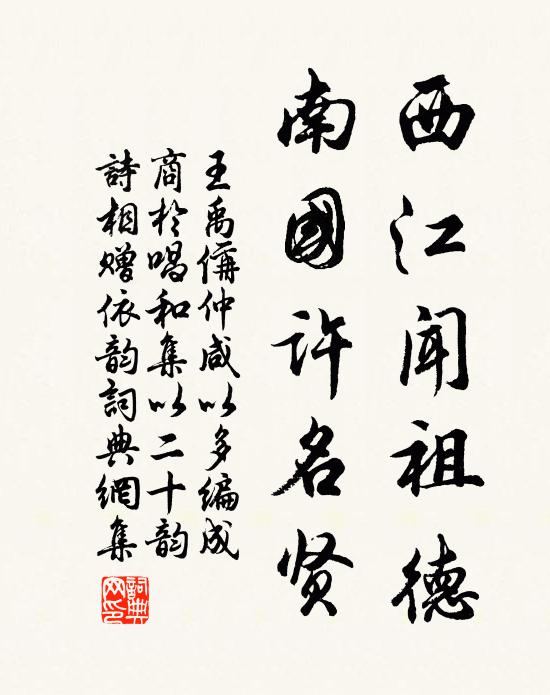 西江闻祖德
南國许名贤
王禹偁仲咸以多编成
商於唱和集以二十韵
詩相赠依韵詞典網集
詞典網印